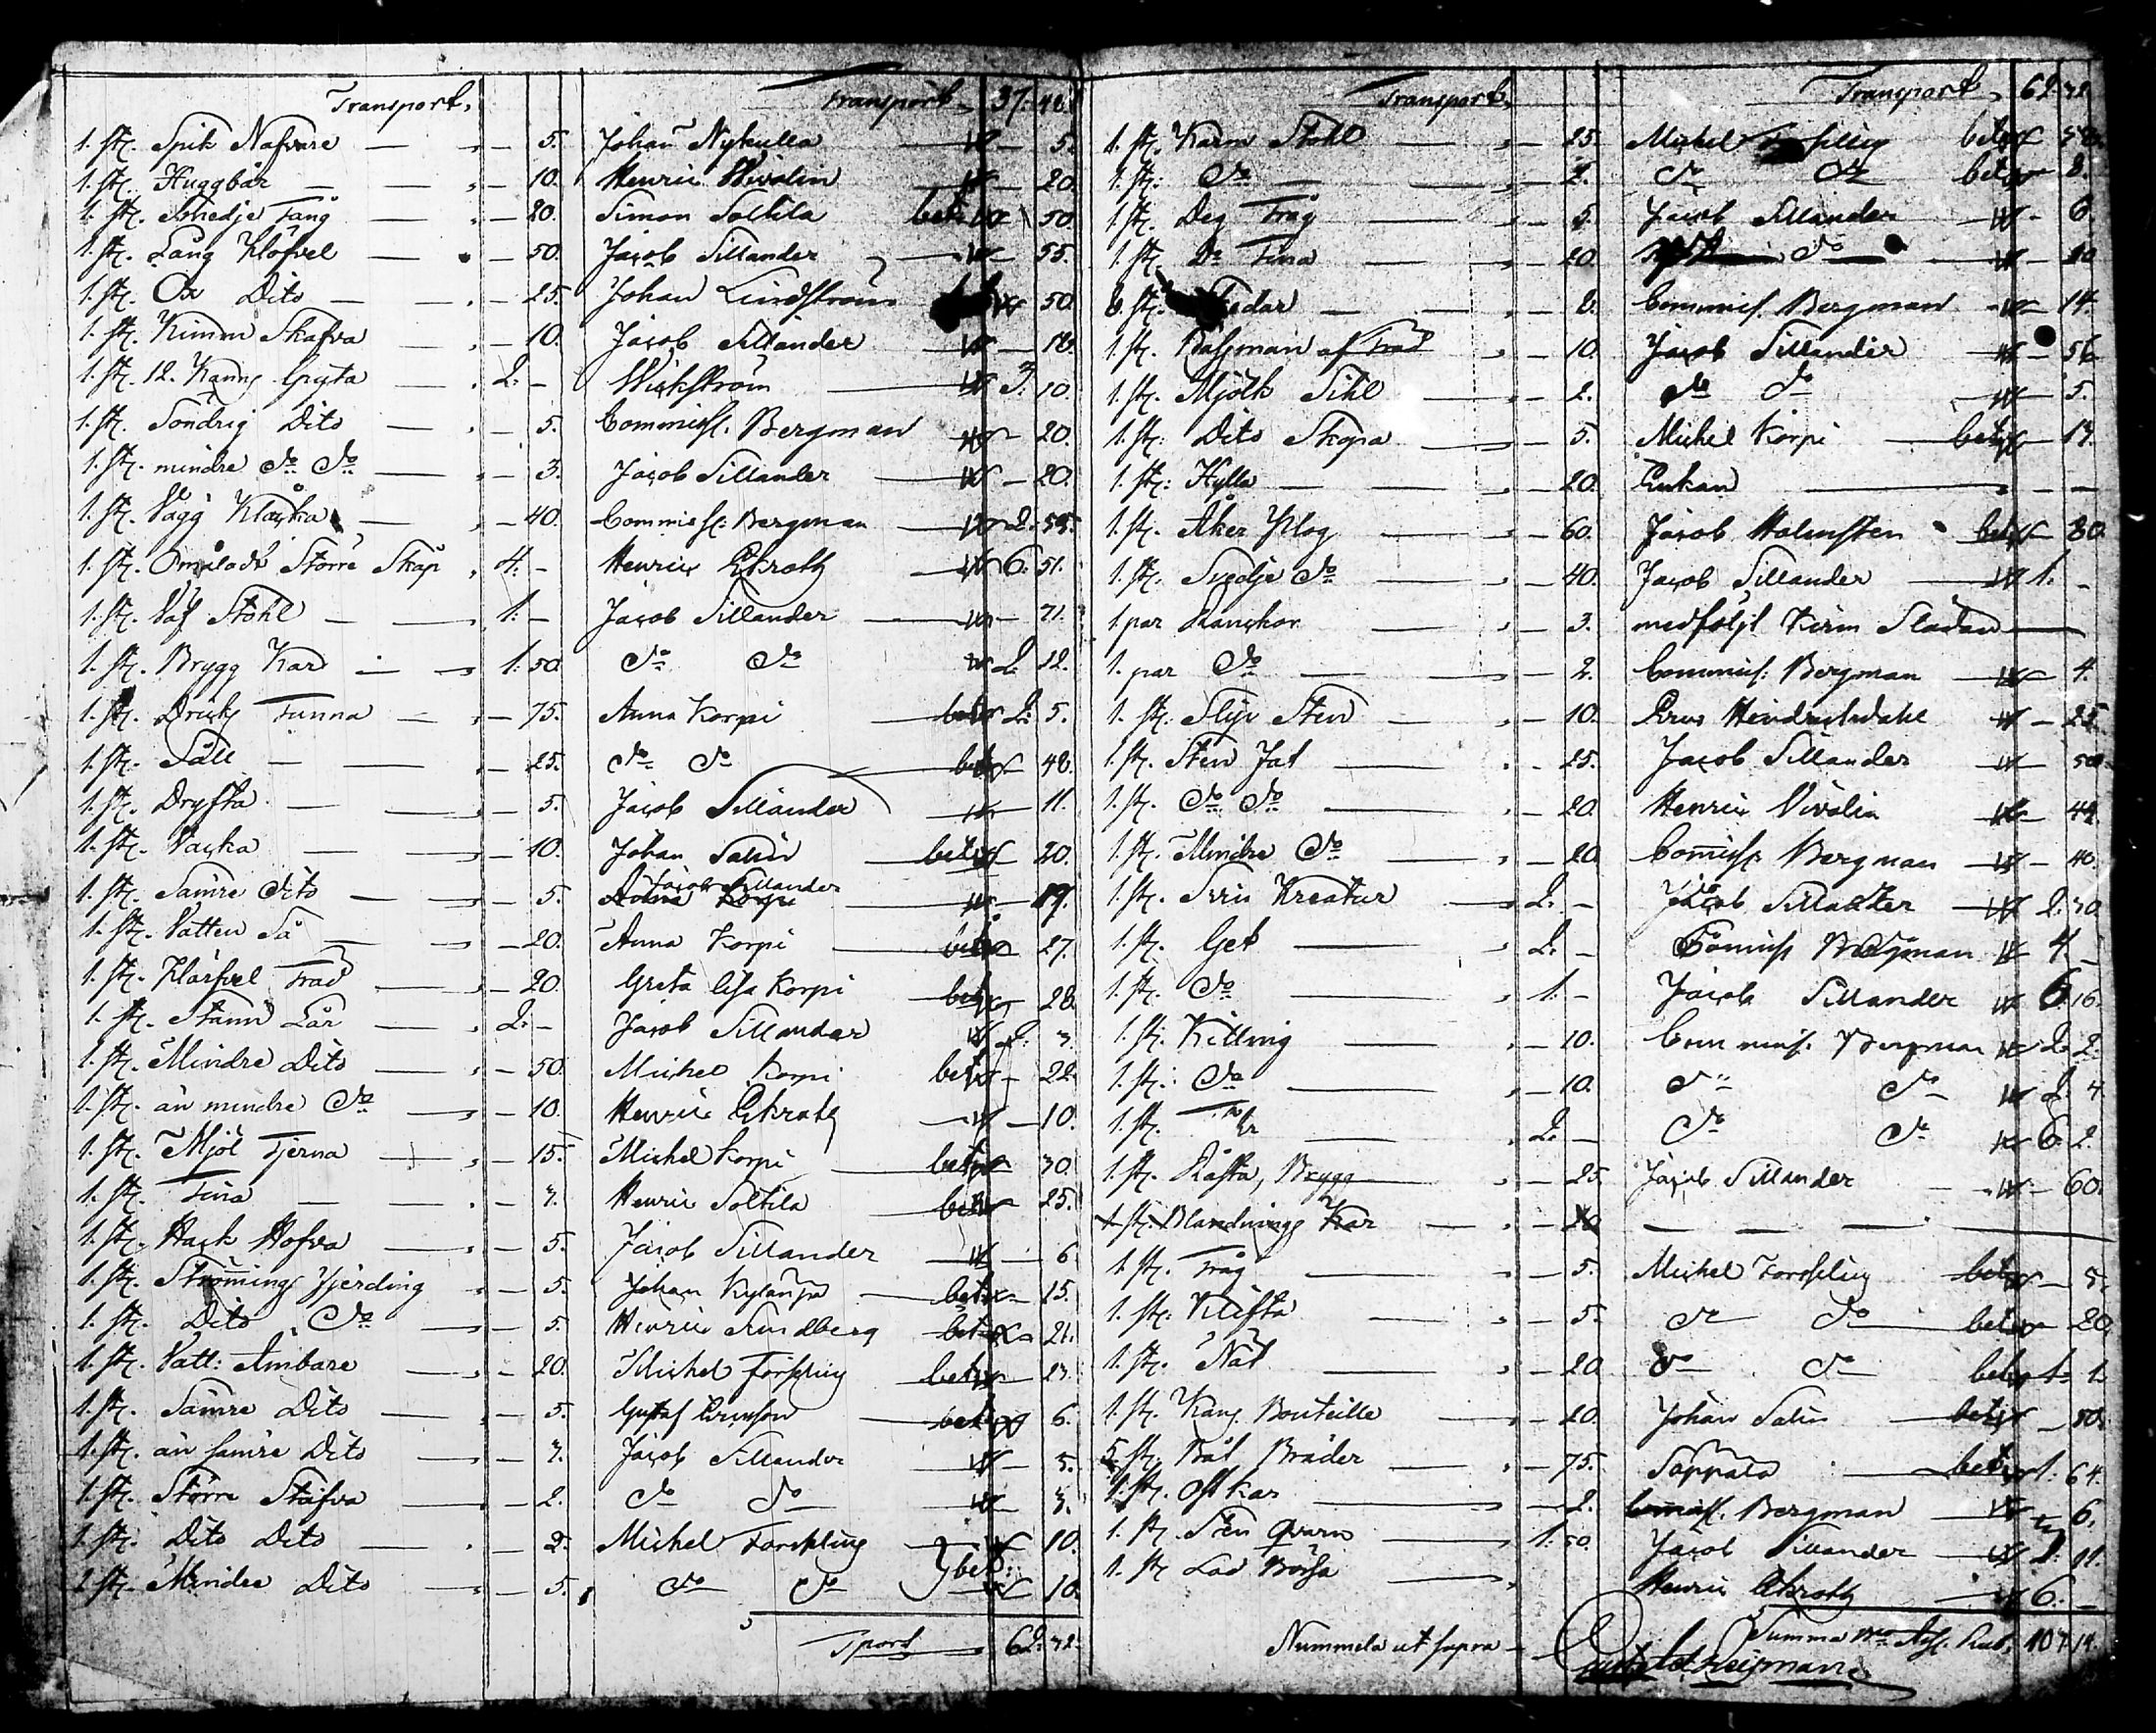 Transport. Transport 37: 48.
1. st. Spik Nafvare — „ — 5. Johan Nykulla — — 5.
1. st. Huggbär — „ — 10. Henric Wivolin — — 20.
1. st. Smedje Tång — „ — 20. Simon Soltila bet: — 50
1. st. Lång Klöfvel — — 50. Jacob Sillander — — 55.
1. st. Ox Dito — „ — 25. Johan Lindström — 50.
1. st. Kimm Skafva — „ — 10. Jacob Sillander — — 18.
1. st. 12. Kanns Gryta — „ 2. — Wickström — 3. 10.
1. st. Söndrig Dito — „ — 5. Commiss. Bergman — 20.
1. st. mindre do do — „ — 3. Jacob Sillander — — 20.
1. st. Vägg Klåcka — „ — 40. Commiss: Bergman — 2. 55.
1. st. Omåladt Större Skåp „ 4. — Henric Ekroth — 6. 51.
1. st. Väf Stohl — „ 1. — Jacob Sillander — — 71.
1. st. Brygg Kar — „ 1. 50. do do 2. 12.
1. st. Dricks Tunna — „ — 75. Anna Korpi — bet 2. 5.
1. st. Såll — „ — 25. do do — bet — 48.
1. st. Dryfta — „ — 5. Jacob Sillander — — 11.
1. st. Vacka — „ — 10. Johan Salin — bet — 20.
1. st. Sämre dito — „ — 5. Jacob Sillander — — 19.
1. st. Vatten Så — „ — 20. Anna Korpi — bet — 27.
1. st. Klöfvel Träd — „ — 20. Greta Lisa Korpi — bet — 28.
1. st. Stånd Lår — „ 2. — Jacob Sillander 2. 3.
1. st. Mindre Dito — „ — 50. Michel Korpi bet — 22.
1. st. än mindre do — „ — 10. Henric Ekroth — — 10.
1. st. Mjöl Tjerna — „ — 15. Michel Korpi — bet — 30.
1. st. Tina — „ — 3. Henric Soltila — bet — 25.
1. st. Hack Hofva — „ — 5. Jacob Sillander — — 6.
1. st. Strömings Fjerding „ — 5. Johan Kylänpä — bet — 15.
1. st. Dito do — „ — 5. Henric Sundberg — bet — 21.
1. st. Vatt: Ämbare — „ — 20. Michel Forssling — bet — 23.
1. st. Sämre Dito — „ — 5. Gustaf Ericsson — bet 6.
1. st. än sämre Dito — „ — 3. Jacob Sillander — — 5.
1. st. Större Stäfva — „ — 2. do do — — 3.
1. st. Dito Dito — „ — 2. Michel Forssling — 10.
2 st. Mindre Dito — „ — 5. do do } bet: — 10.
Tport „ 62. 32.
Transport. Transport 62 32.
1. st. Karm Stohl — „ — 25. Michel Forssling bet
1. st. do — „ — 2. do do bet — 8.
1. st. Deg Tråg — „ — 5. Jacob Sillander — 6.
1. st. Do Tina — „ — 20. do — — 20
8. st. — „ — 8. Commiss. Bergman — — 14.
1. st. af Träd „ — 10. Jacob Sillander — — 56
1. st. Mjölk Sihl — „ — 2. do do — — 5.
1. st. Dito Skopa — „ — 5. Michel Korpi — bet — 17.
1. st. Hylla — „ — 20. Enkan — „ — —
1. st. Åker Plog — „ — 60. Jacob Holmsten bet — 80.
1. st. Svedje do — „ — 40. Jacob Sillander — 1. —
1 par Ranckor — „ — 3. medföljt Kärn Slädan —
1. par do — „ — 2. Commiss: Bergman — — 4.
1. st. Slip Sten — „ — 10. Hendrichsdahl — 25.
1. st. Sten Fat — „ — 25. Jacob Sillander — 50.
1. st. do do — „ — 20. Henric Vivolin — 42.
1. st. Mindre do — „ — 20. Commiss: Bergman — — 40.
1. st. Svin Kreatur — „ 2. — Jacob Sillander — 2. 30.
1. st. Get — „ 2. — Commiss Bergman 4. —
1. st. do — „ 1. — Jacob Sillander 6. 16.
1. st. Killing — „ — 10. Commiss. Bergman 2. 2.
1. st. do — „ — 10. do do 2. 4.
1. st. — „ 2. — do do 6. 2.
1. st. Råsta, Brygg — „ — 25. Jacob Sillander — — 60.
1 st. Blandnings Kar — „ — 20 — — —
1. st. Tråg — „ — 5. Michel Forssling bet — 5.
1. st. Klifta — „ — 5. do do bet — 20.
1. st. Nät — „ — 20 do do bet 1. 1.
1. st. Kanns Bouteille — „ — 20. Johan Salin — bet — 50.
5. st. Båt Bräder — „ — 75. Sappala — bet 1. 64.
1. st. Ost kar — „ — 2. Commiss. Bergman — — 6.
1. st. Sten Qvarn — „ 1. 50. Jacob Sillander — 2. 11.
1 st Lad Bössa — „ Henric Ekroth — 6. —
Nummela ut supra — Summa Bco Ass. Rub. 107. 14.